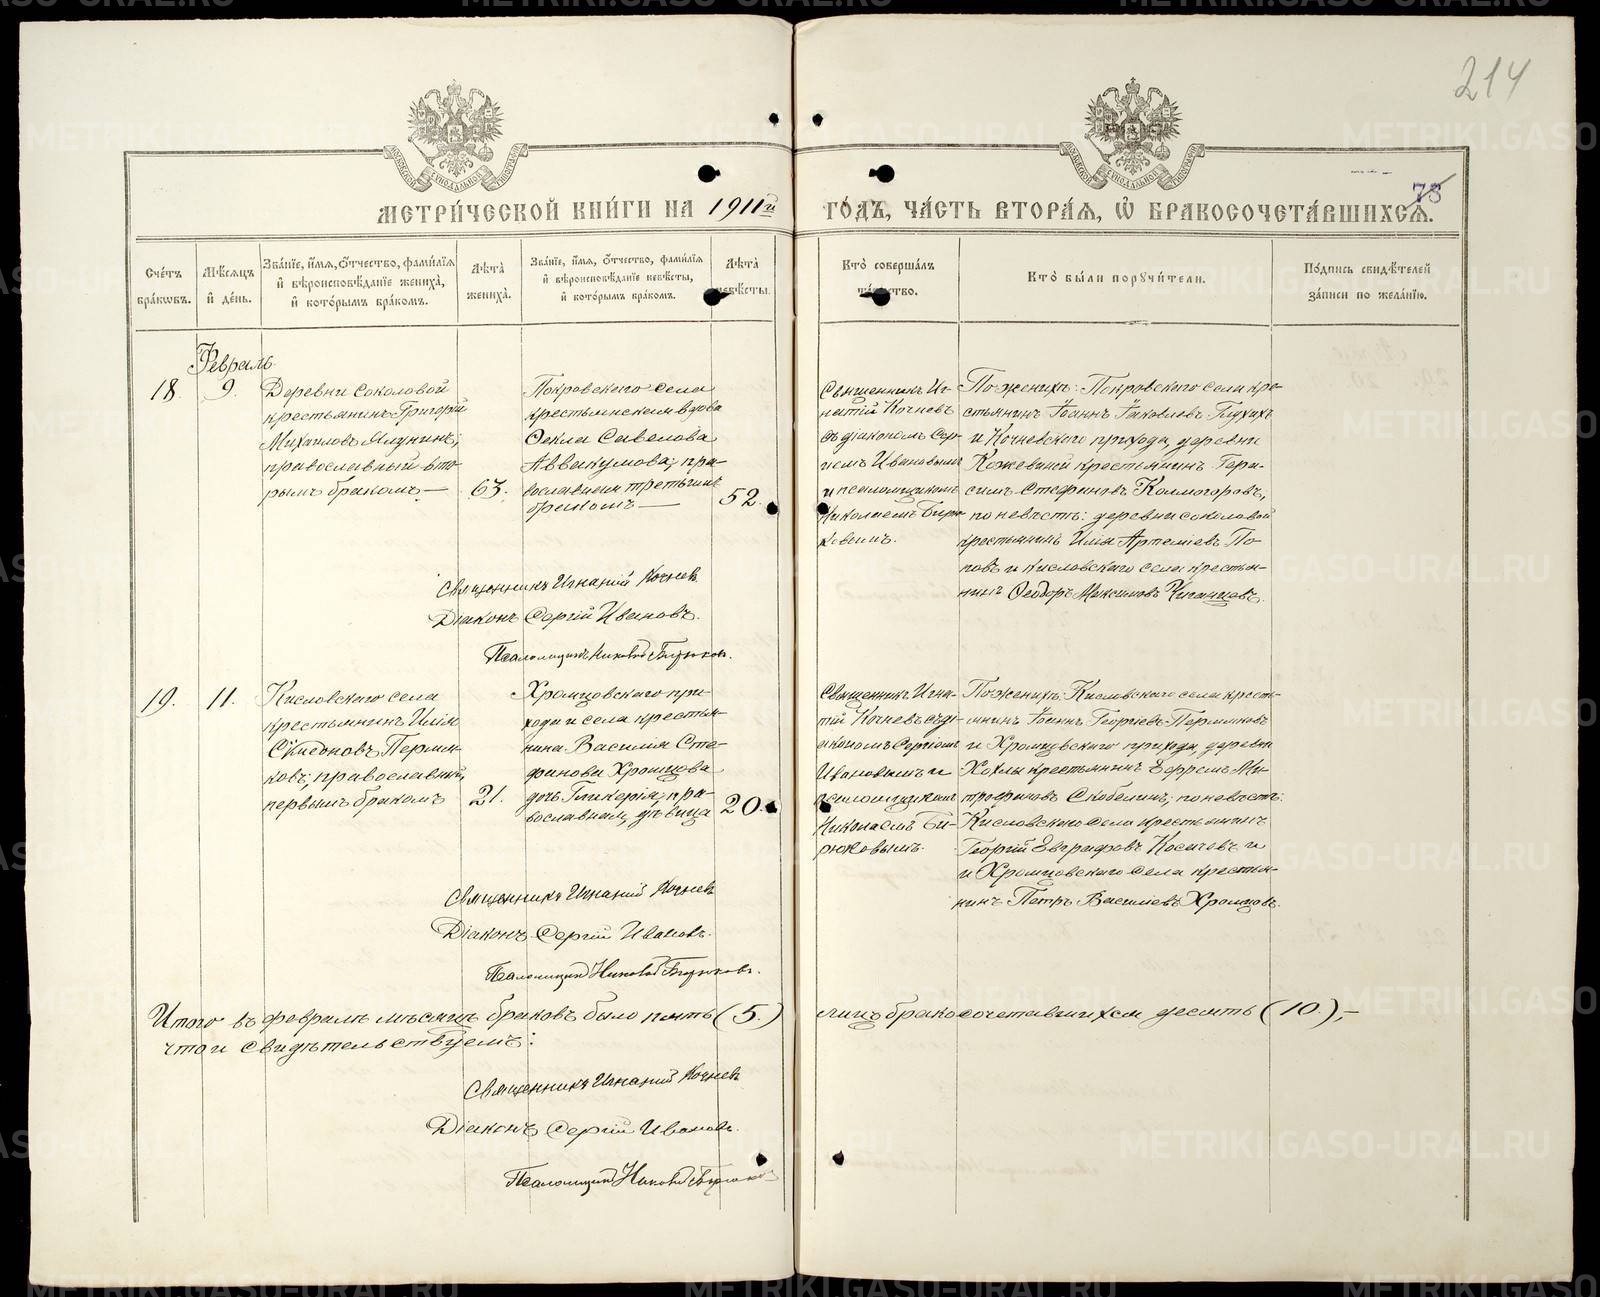 214
МЕТРИ́ЧЕСКОЙ КНИ́ГИ НА 1911й ГО́ДЪ, ЧА́СТЬ ВТОРА́Я, Ѡ БРАКОСОЧЕТА́ВШИХСЯ.
Сче́тъ бра́кѡвъ.
Мѣ́сяцъ и҆ де́нь.
Зва́нїе, и҆́мя, ѻ҆́тчество, фами́лїя
и҆ вѣроисповѣ́данїе жениха̀,
и҆ кото́рымъ бра́комъ.
Лѣ́та жениха̀.
Зва́нїе, и҆́мя, ѻ҆́тчество, фами́лїя
и҆ вѣроисповѣ́данїе невѣ́сты,
и҆ кото́рымъ бра́комъ.
Лѣ́та невѣ́сты.
Кто̀ соверша́лъ
та́инство.
Кто̀ бы́ли порꙋчи́тели.
По́дпись свидѣ́телей
за́писи по жела́нїю.
Февраль
18
9.
Деревни Соколовой
крестьянинъ Григорій
Михаиловъ Ялунинъ;
православный вто-
рымъ бракомъ
63.
Покровскаго села
крестьянская вдова
Ѳекла Савелова
Аввакумова; пра-
вославная третьимъ
бракомъ
52.
Священникъ Иг-
натій Кочневъ
съ діакономъ Сер-
гіемъ Ивановымъ
и псаломщикомъ
Николаемъ Бирю-
ковымъ.
По женихѣ: Покровскаго села кре-
стьянинъ Іоаннъ Іаковлевъ Глухихъ
и Кочневскаго прихода, деревни
Кожевиной крестьянинъ Гера-
симъ Стефановъ Колмогоровъ,
по невѣстѣ: деревни Соколовой
крестьянинъ Илія Артеміевъ По-
повъ и Кисловскаго села крестья-
нинъ Ѳеодоръ Максимовъ
Священникъ Игнатій Кочнев
Діаконъ Сергій Ивановъ.
Псаломщикъ Николай Бирюков.
19.
11.
Кисловскаго села
крестьянинъ Илія
Сѵмеоновъ Пермя-
ковъ; православный,
первымъ бракомъ
21.
Хромцовскаго при-
хода и села крестья-
нина Василія Сте-
фанова Хромцова
дочь Гликерія; пра-
вославная, дѣвица
20.
Священникъ Игна-
тій Кочневъ съ ді-
акономъ Сергіемъ
Ивановымъ и
псаломщикомъ
Николаемъ Би-
рюковымъ.
По женихѣ: Кисловскаго села кресть-
янинъ Іоаннъ Георгіевъ Пермяковъ
и Хромцовскаго прихода, деревни
Хохлы крестьянинъ Ефремъ Ми-
трофановъ Скобелинъ; по невѣстѣ:
Кисловскаго села крестьянинъ
Георгій Евграфовъ Косачевъ и
и Хромцовскаго села крестья-
нинъ Петръ Василіевъ Хромцовъ.
Священникъ Игнатій Кочнев
Діаконъ Сергій Ивановъ.
Псаломщикъ Николай Бирюковъ.
Итого въ февралѣ мѣсяцѣ браковъ было пять (5.) лицъ бракосочетавшихся десять (10.),—
что и свидѣтельствуемъ:
Священникъ Игнатій Кочнев
Діаконъ Сергій Ивановъ.
Псаломщикъ Николай Бирюков
METRIKI.GASO-URAL.RU